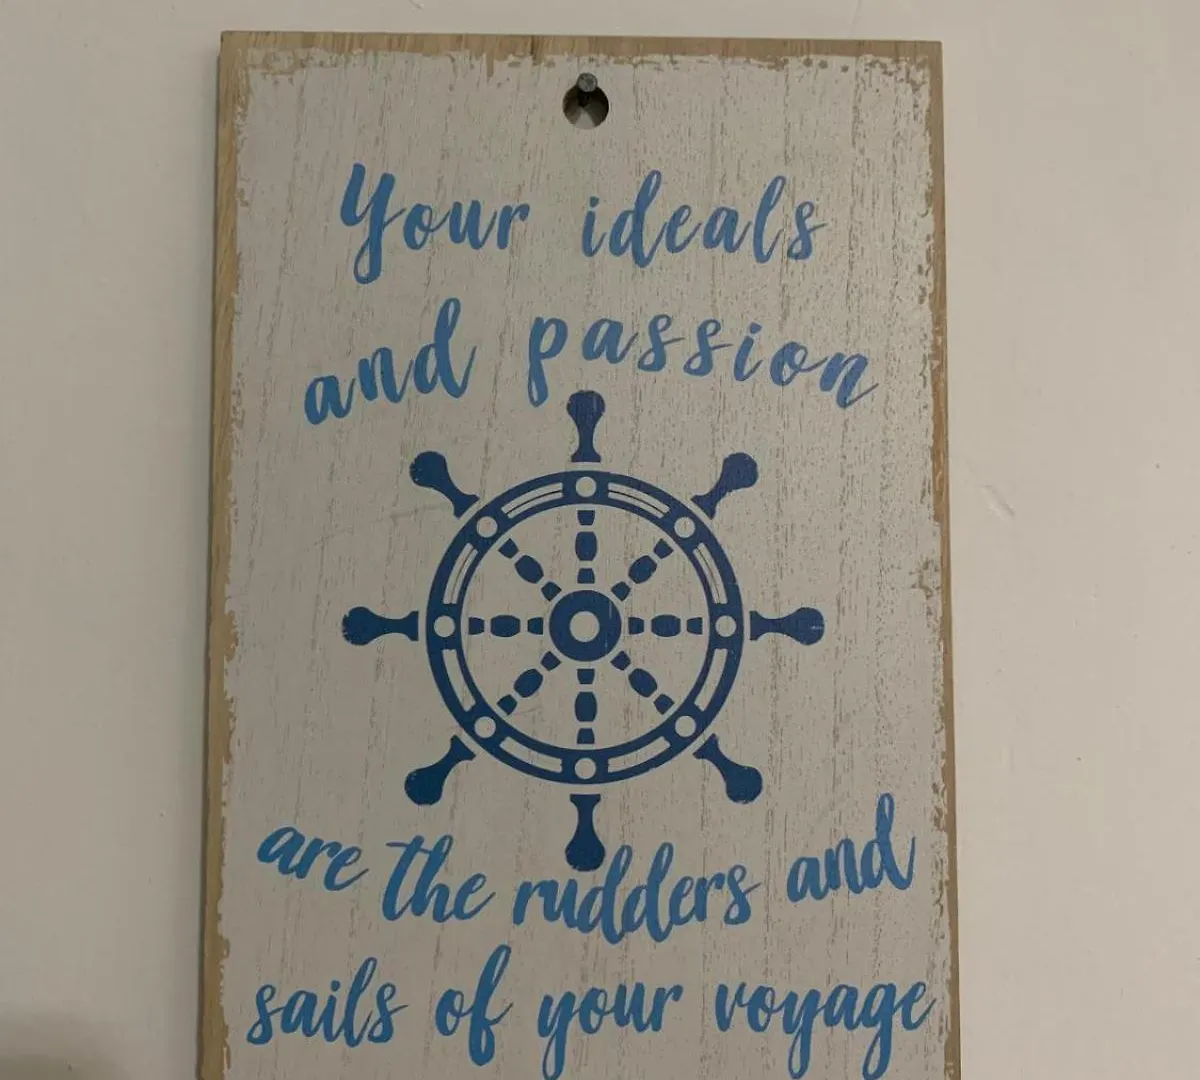 Your ideals
and passion
are the rudders and
sails of your voyage